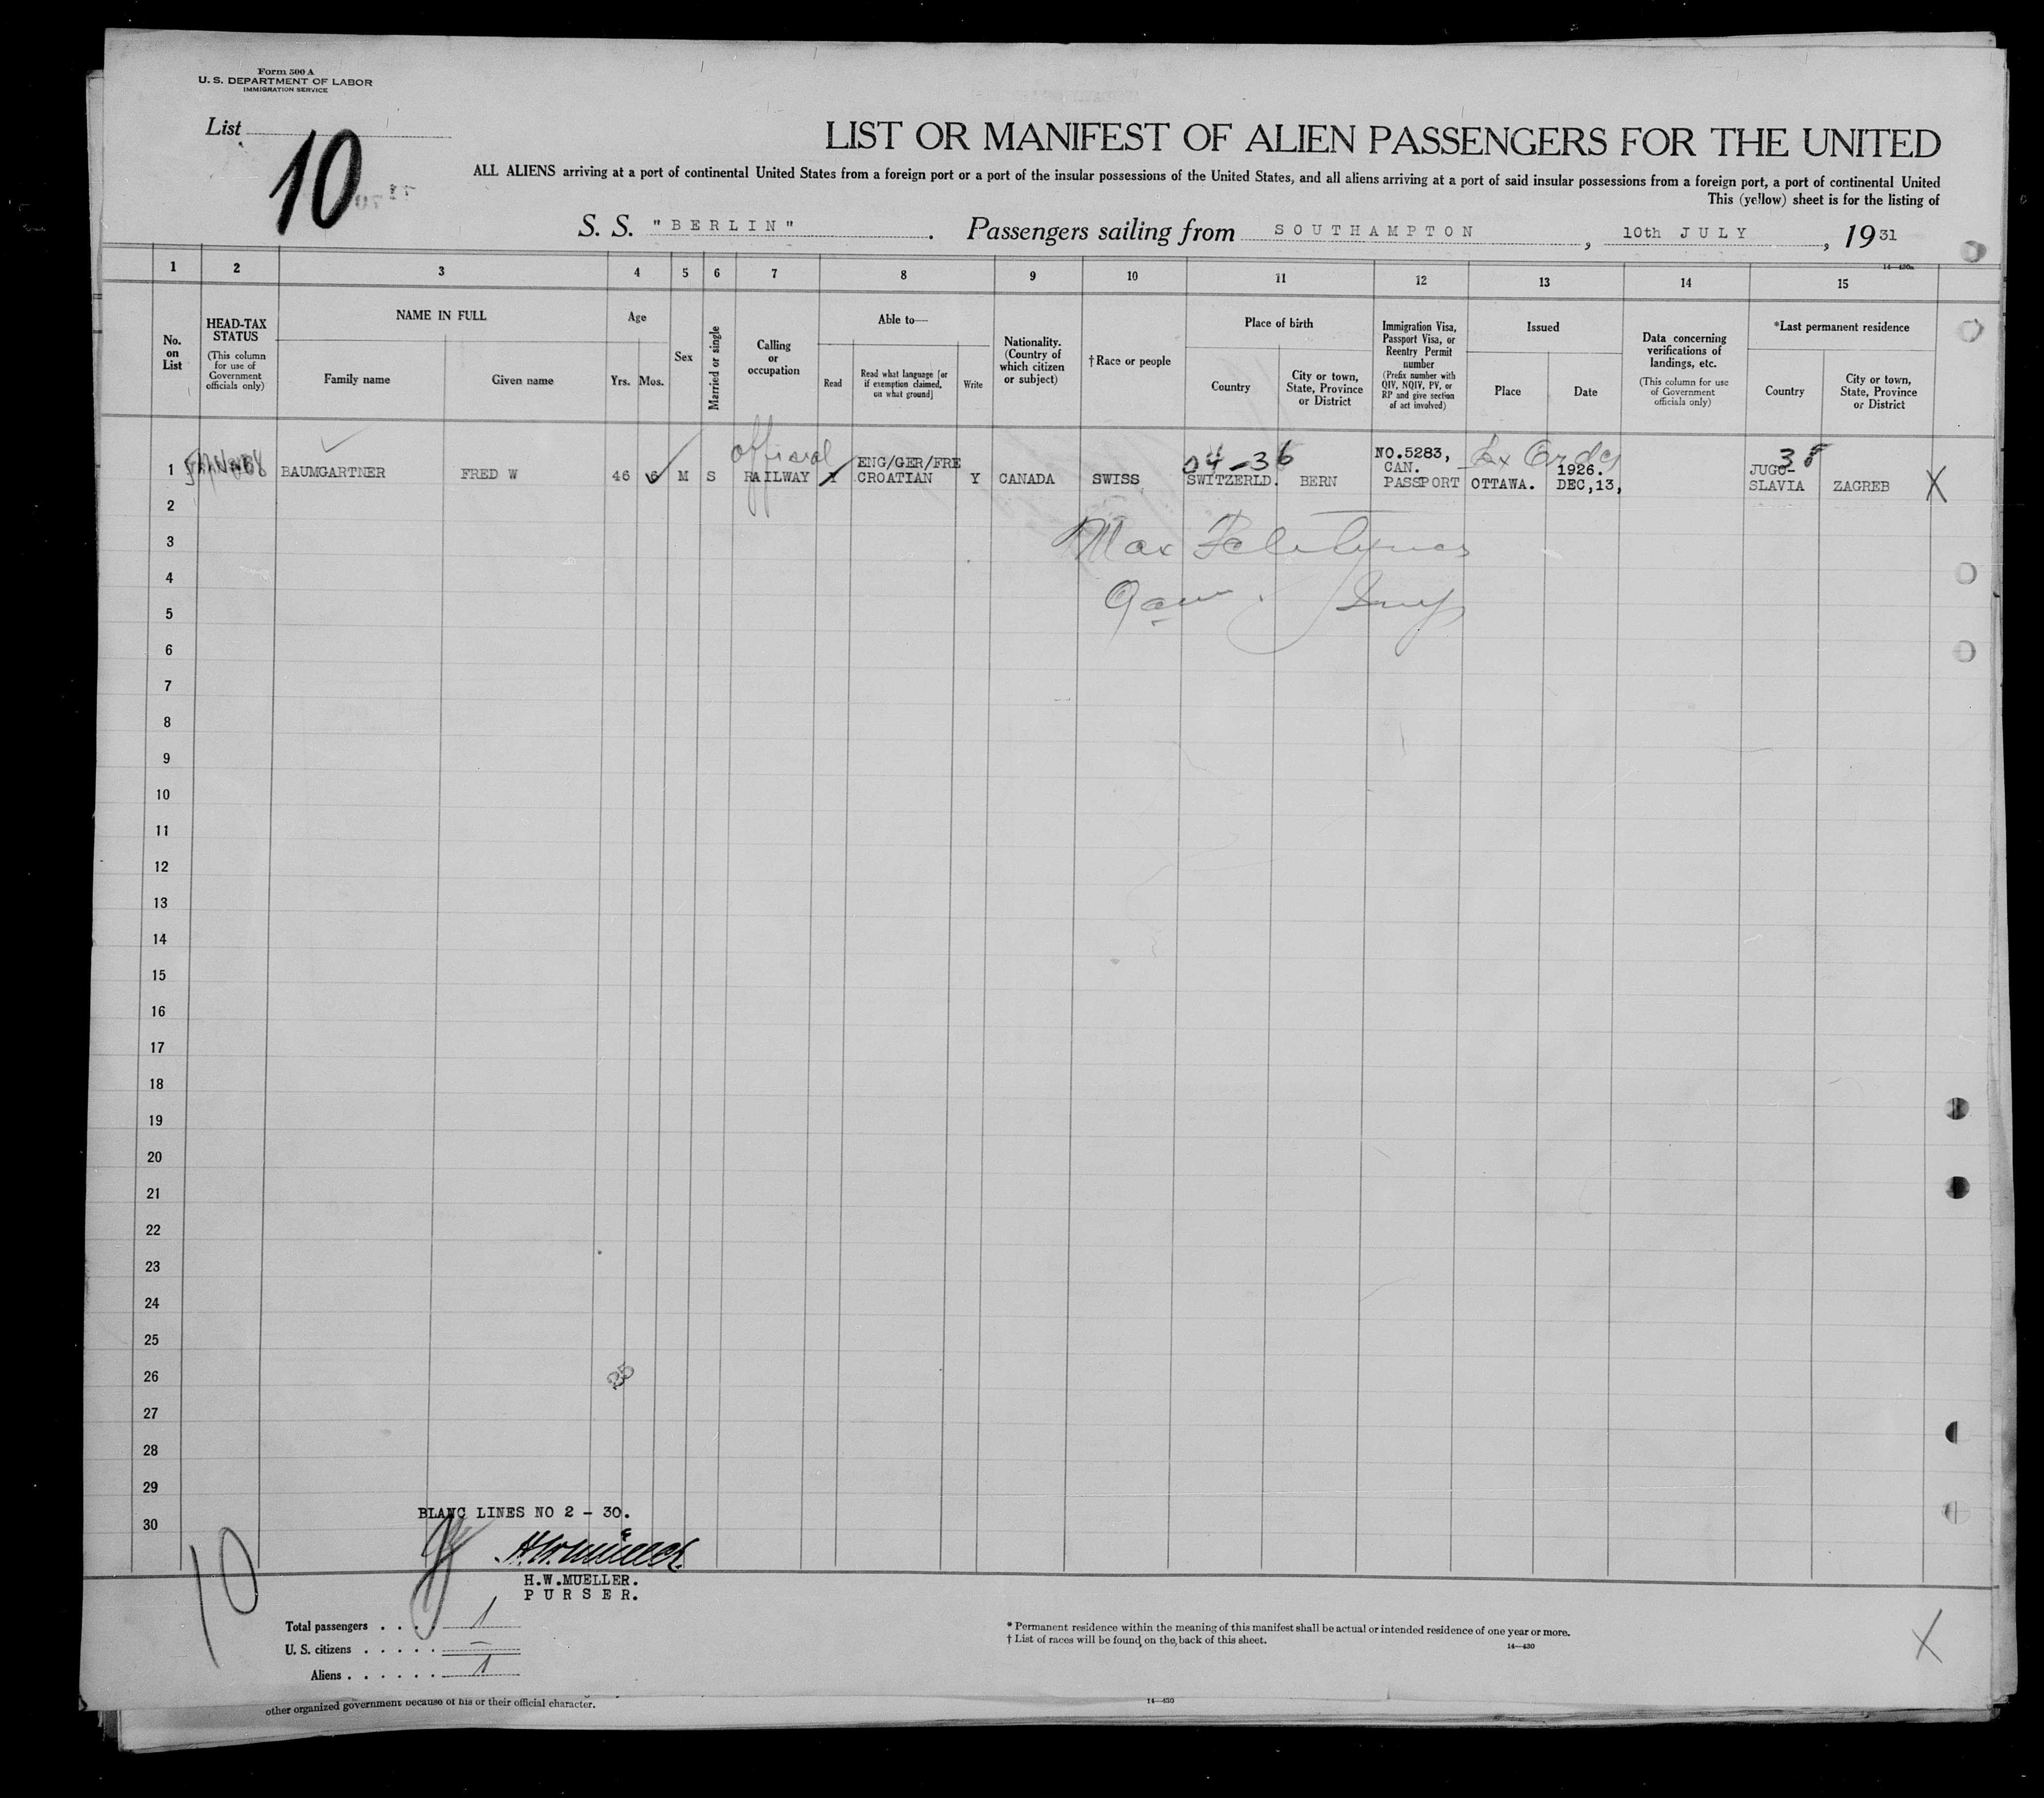 Form 500 A
U. S. DEPARTMENT OF LABOR
IMMIGRATION SERVICE
List
10
LIST OR MANIFEST OF ALIEN PASSENGERS FOR THE UNITED
ALL ALIENS arriving at a port of continental United States from a foreign port or a port of the insular possessions of the United States, and all aliens arriving at a port of said insular possessions from a foreign port, a port of continental United
This (yellow) sheet is for the listing of
S. S. "BERLIN". Passengers sailing from SOUTHAMPTON, 10th JULY, 1931
14—430a
1 2 3 4 5 6 7 8 9 10 11 12 13 14 15
No. on List
HEAD-TAX STATUS
(This column for use of Government officials only)
NAME IN FULL
Family name
Given name
Age
Yrs. Mos.
Sex
Married or single
Calling or occupation
Able to—
Read
Read what language [or if exemption claimed, on what ground]
Write
Nationality. (Country of which citizen or subject)
†Race or people
Place of birth
Country
City or town, State, Province or District
Immigration Visa, Passport Visa, or Reentry Permit number
(Prefix number with QIV, NQIV, PV, or RP and give section of act involved)
Issued
Place
Date
Data concerning verifications of landings, etc.
(This column for use of Government officials only)
*Last permanent residence
Country
City or town, State, Province or District
official
04-36
38
1 BAUMGARTNER FRED W 46 6 M S RAILWAY Y ENG/GER/FRE CROATIAN Y CANADA SWISS SWITZERLD. BERN NO.5283, CAN. PASSPORT OTTAWA. 1926. DEC,13, JUGO-SLAVIA ZAGREB X
2
3
Max
4
5
6
7
8
9
10
11
12
13
14
15
16
17
18
19
20
21
22
23
24
25
26
27
28
29
BLANC LINES NO 2 - 30.
30
H.W.MUELLER.
PURSER.
10
Total passengers . . . . 1
U. S. citizens . . . . . —
Aliens . . . . . . 1
* Permanent residence within the meaning of this manifest shall be actual or intended residence of one year or more.
† List of races will be found on the back of this sheet.
14—430
X
other organized government because of his or their official character.
14—430